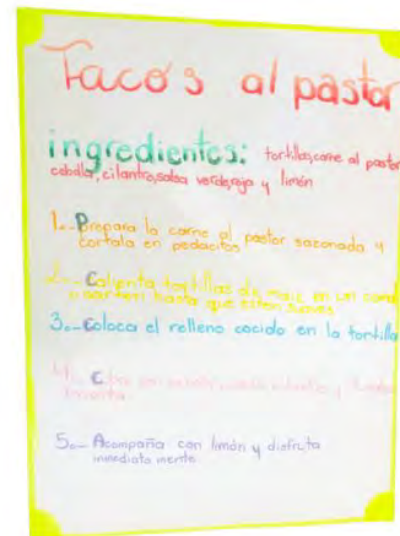 Tacos al pastor
ingredientes: tortillas,carne al pastor
cebolla, cilantro,salsa verde,roja y limón
1.- Prepara la carne al pastor sazonada y
cortala en pedacitos
2.- Calienta tortillas de maiz en un comal
o sarten hasta que esten suaves
3.- Coloca el relleno cocido en la tortilla
4.-
5.- Acompaña con limón y disfruta
inmediata mente